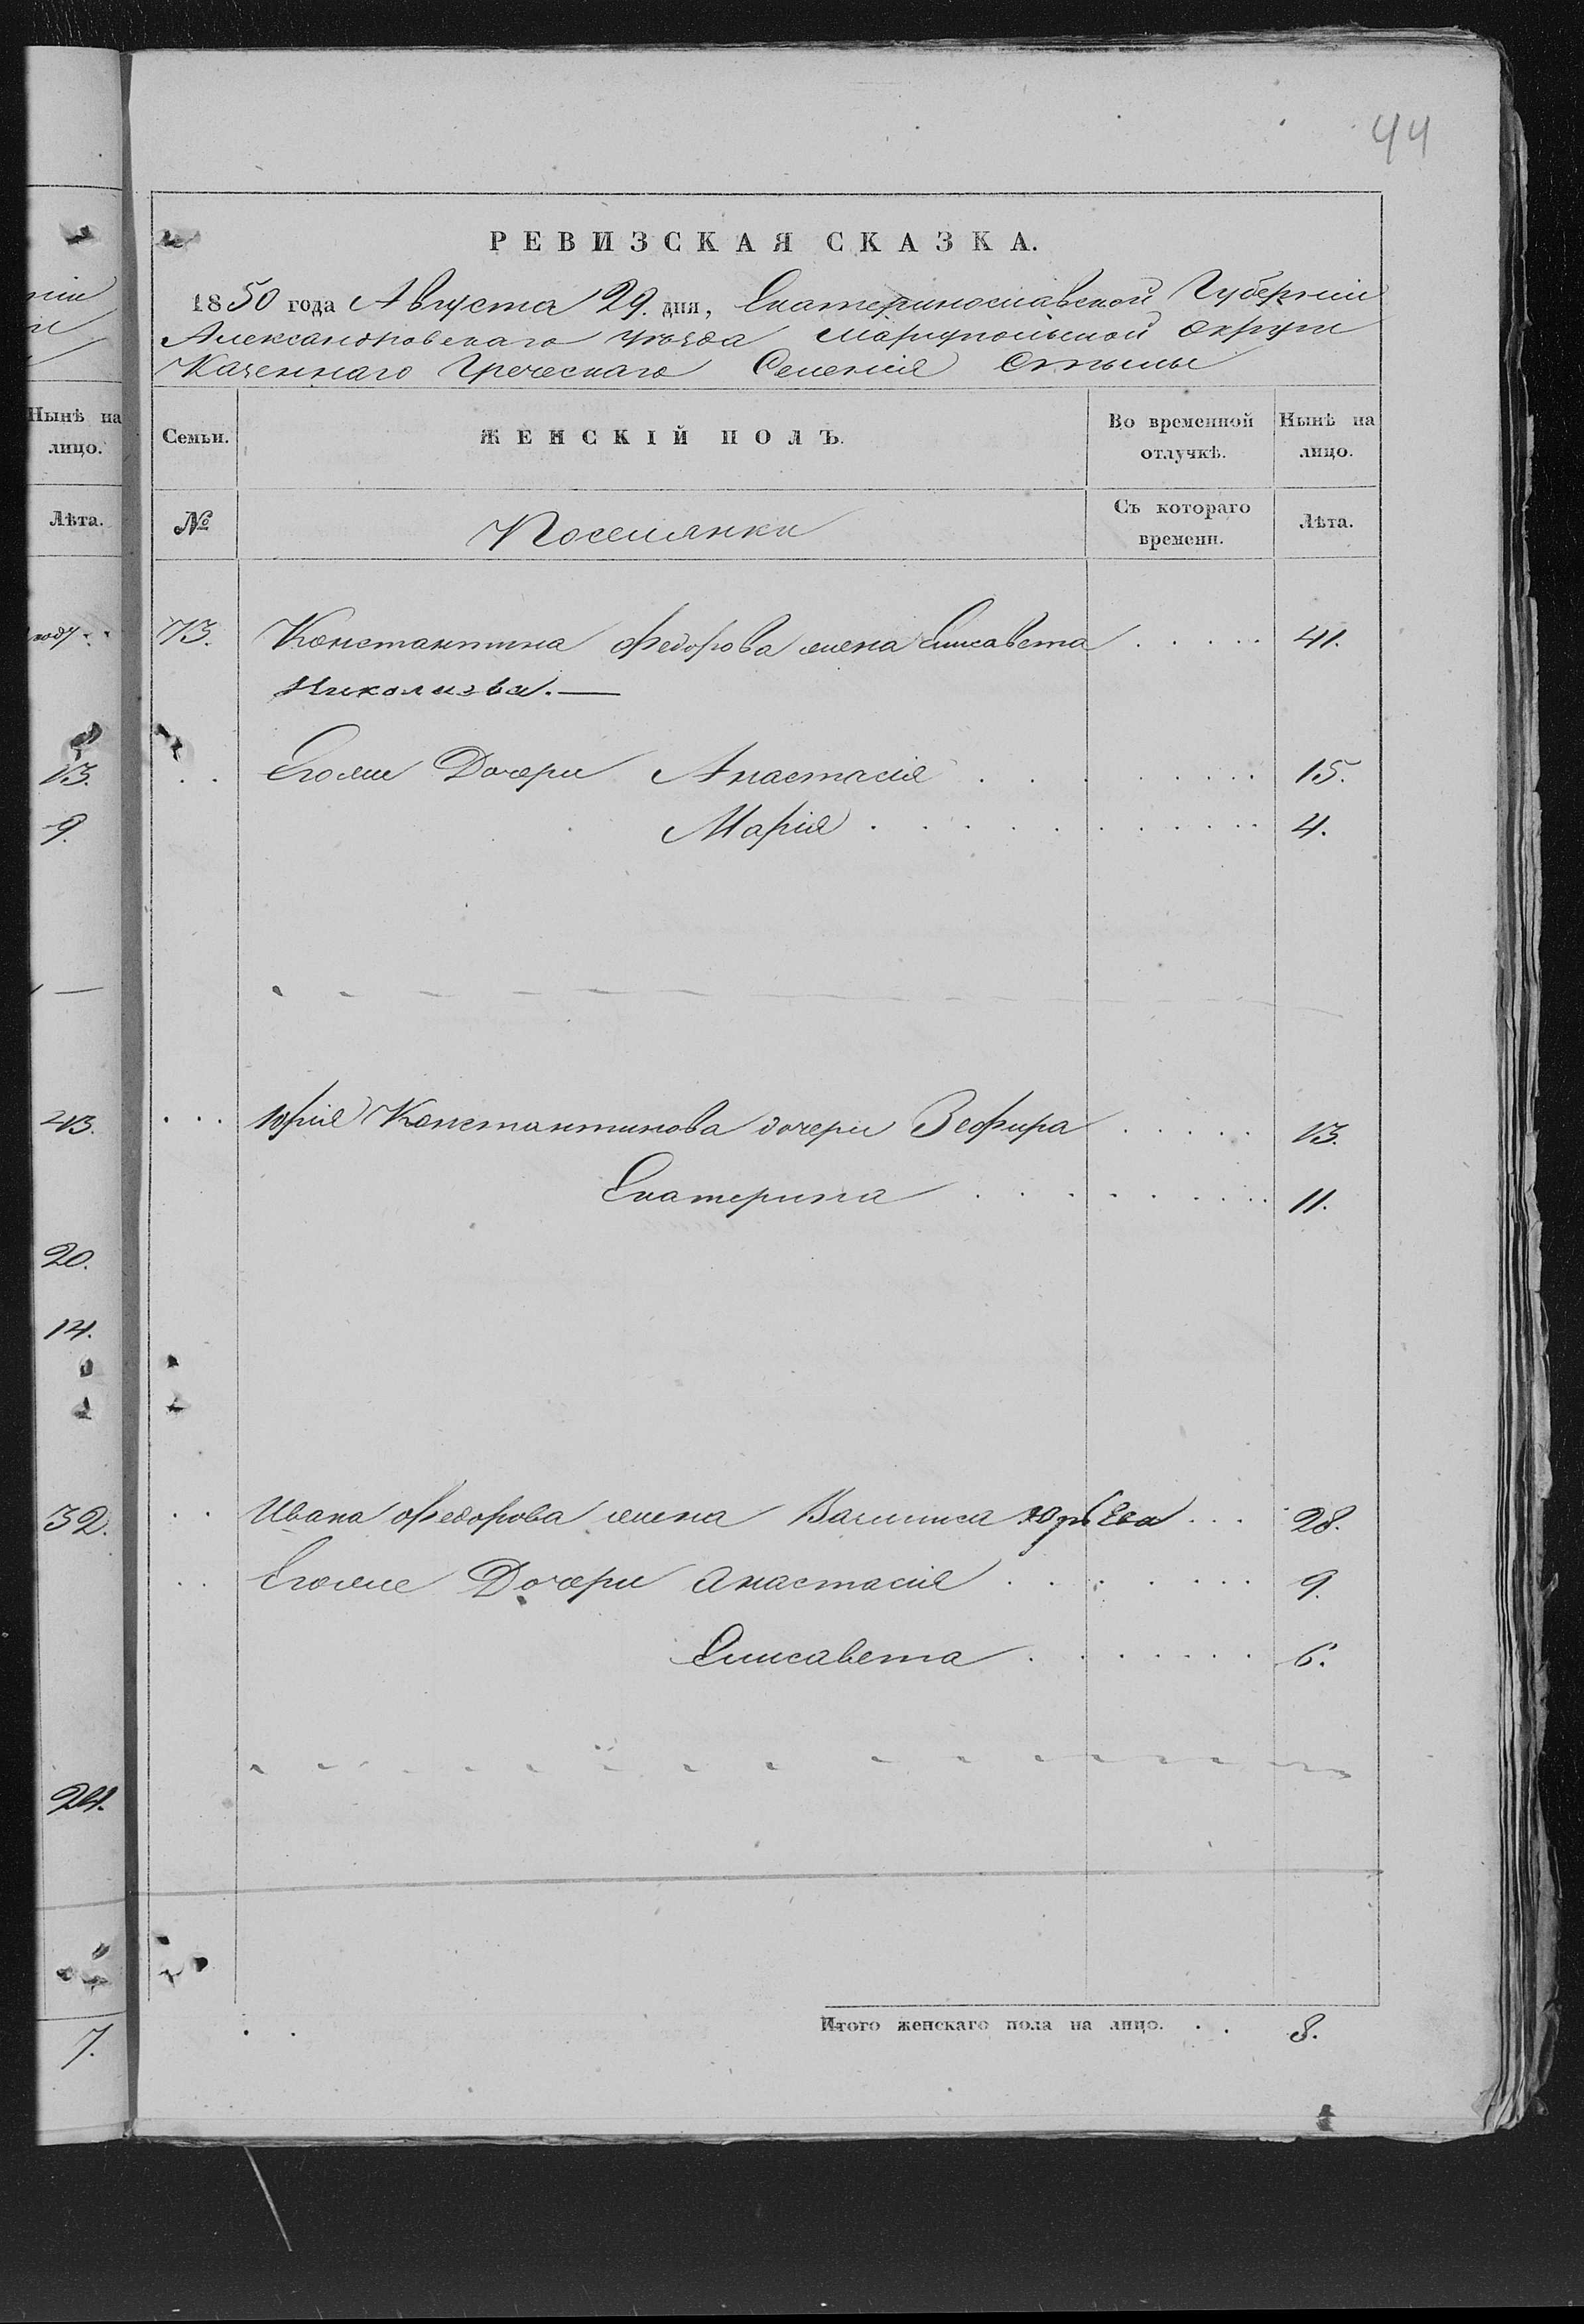 44
РЕВИЗСКАЯ СКАЗКА.
1850 года Августа 29. дня, Екатеринославской Губерніи
Александровскаго уѣзда Маріупольской округи
Казеннаго Греческаго Селенія Стылы
Семьи.
ЖЕНСКІЙ ПОЛЪ.
Во временной отлучкѣ.
Нынѣ на лицо.
№
Поселянки
Съ котораго времени.
Лѣта.
73. Константина Федорова жена Елисавета . . . . . 41.
Николаева. —
. . Егоже Дочери Анастасія . . . . . . . 15.
Марія . . . . . . . . . . . 4.
. . . Юрія Константинова дочери Зефира . . . . . 13.
Екатерина . . . . . . . . . 11.
. . Ивана Федорова жена Василиса Юрьева . . . 28.
. . Егоже Дочери Анастасія . . . . . . . 9.
Елисавета . . . . . . . 6.
Итого женскаго пола на лицо. . . 8.
Нынѣ на
лицо.
Лѣта.
13.
9.
43.
20.
14.
32.
24.
7.